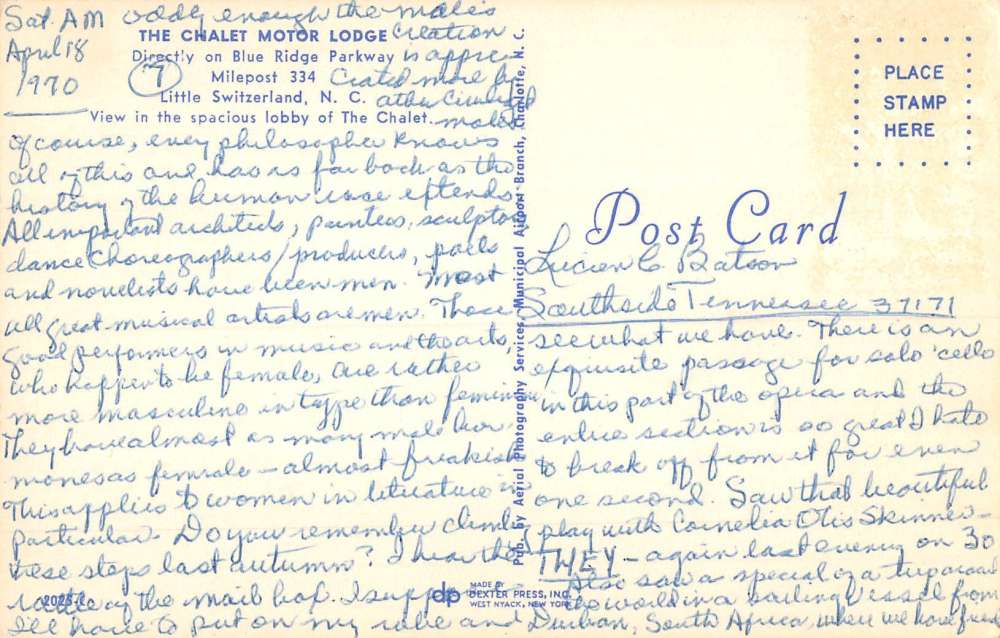 Sat. AM oddly enough the males
April 18 creation
1970 is appre-
7 ciated more by
other civilized
males
THE CHALET MOTOR LODGE
Directly on Blue Ridge Parkway
Milepost 334
Little Switzerland, N. C.
View in the spacious lobby of The Chalet.
Of course, every philosopher knows
all of this and has as far back as the
history of the human race extends.
All important architects, painters, sculptors
dance choreographers, producers, poets
and novelists have been men. Most
all great musical artists are men. Those
good performers in music and the arts,
who happen to be female, are rather
more masculine in type than feminine
They have almost as many male hor-
mones as female - almost freakish
This applies to women in literature in
particular. Do you remember climbing
these steps last autumn? I hear the
rattle of the mail box. I suppose
I'll have to put on my robe and
Pub. by Aerial Photography Services, Municipal Airport Branch, Charlotte, N. C.
2028-C
dp MADE BY
DEXTER PRESS, INC.
WEST NYACK, NEW YORK
PLACE
STAMP
HERE
Post Card
Lucien C. Batson
Southside Tennessee 37171
see what we have. There is an
exquisite passage for solo 'cello
in this part of the opera and the
entire section is so great I hate
to break off from it for even
one second. Saw that beautiful
play with Cornelia Otis Skinner -
THEY - again last evening on 30
Also saw a special of a trip around
the world in a sailing vessel from
Durban, South Africa, where we have